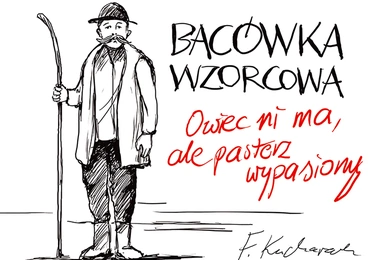 BACÓWKA
WZORCOWA
Owiec ni ma,
ale pasterz
wypasiony
F. Kucharczak